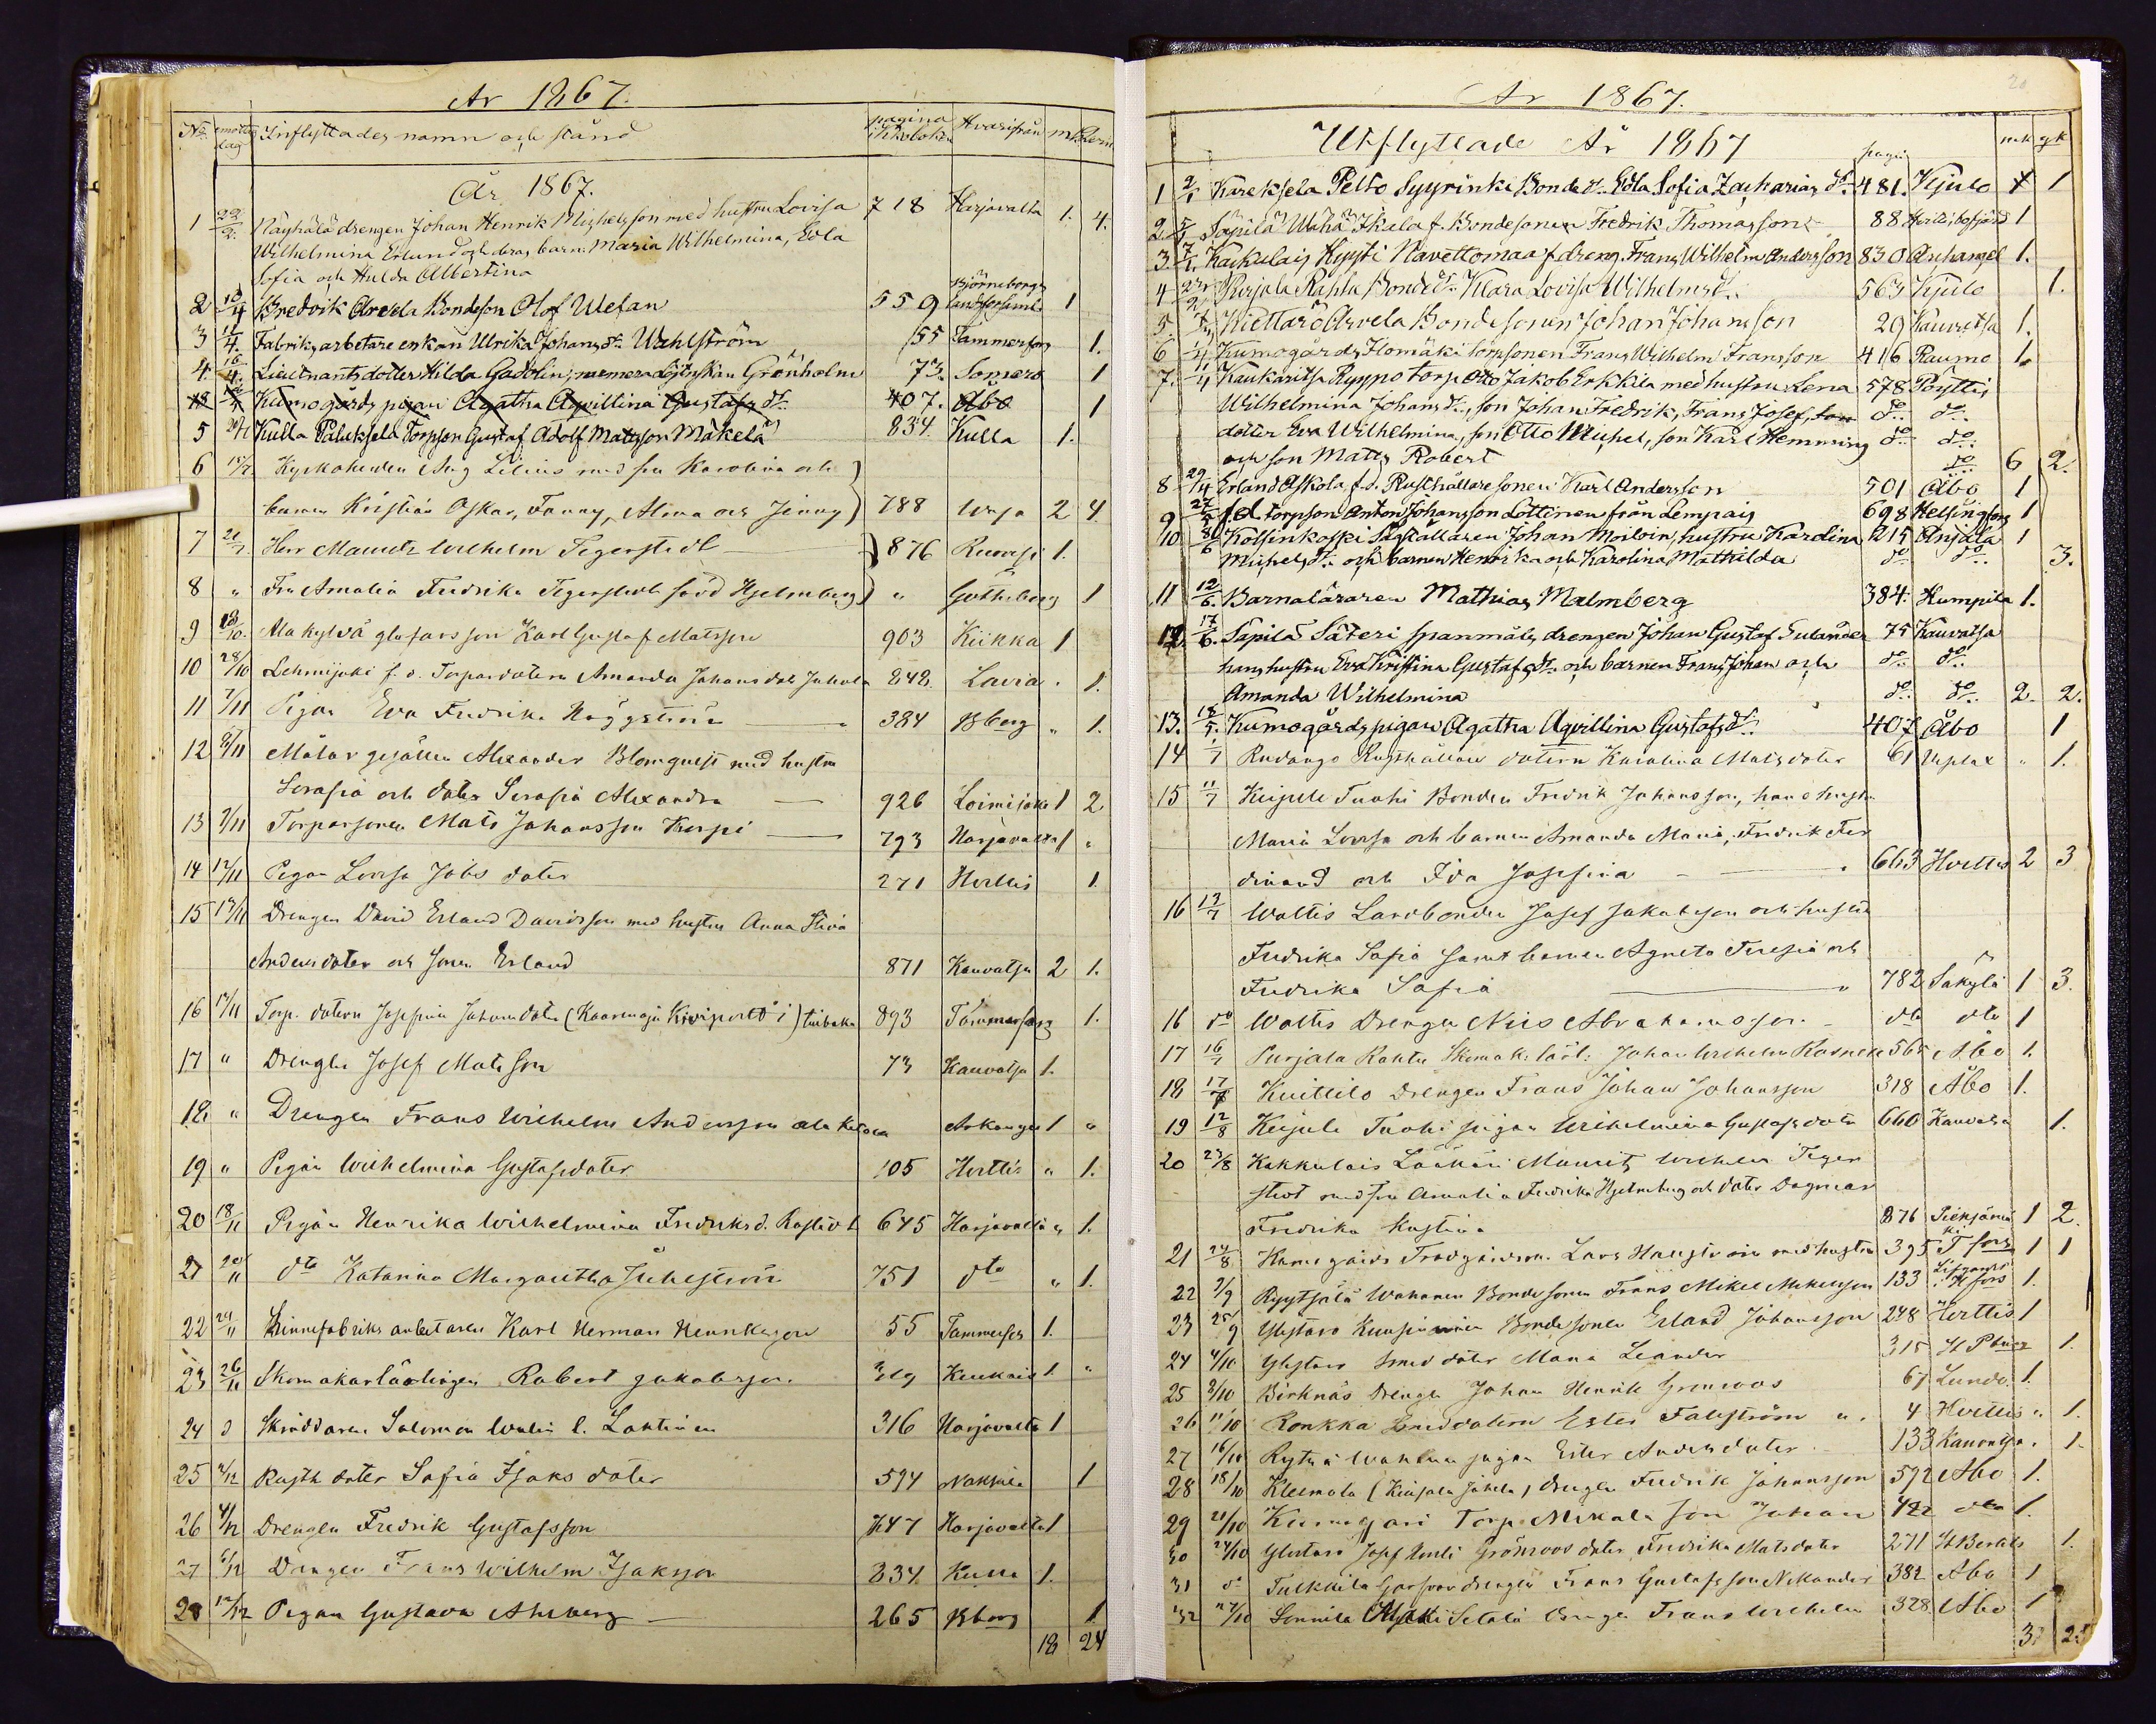 År 1867.
No. dag Inflyttades namn och stånd pagina Hvarifrån
År 1867.
1 22/2. drengen Johan Henrik Michelsson med hustru Lovisa 718 Harjavalta 1. 4.
Wilhelmina Erlund och deras barn: Maria Wilhelmina, Edla
Sofia och Hulda Albertina
Björneborgs
2 10/4 Bredvik Arvela Bondeson Olof Uletan 559 landsförsaml. 1
3 11/4. Fabriksarbetare enkan Ulrika Johans dr. Wahlström 155 Tammerfors 1.
4. 16/4. Lieutnantsdotter Hilda Gadolin, Grönholm 73. Somero 1
Kumogårds pigan Agatha Aqvillina Gustafs dr. 407. Åbo 1
5 Kulla Paluksela Torpson Gustaf Adolf Mattsson Mäkelä 834. Kulla 1.
6 15/7. Kyrkoherden Aug Lilius med fru Karolina och
barnen Kristian Oskar, Fanny, Alma och Jenny 788 Wasa 2 4
7 21/7 Herr Mauritz Wilhelm Tegerstedt 876 Ruovesi 1.
8 " Fru Amalia Fredrika Tegerstedt född Hjelmberg " Götheborg 1
9 18/10. Ala Kylvä son Karl Gustaf Matsson 903 Kiikka 1
10 28/10 Lehmijoki f. d. Torpardotern Amanda Johansdoter 848. Lavia . 1.
11 7/11 Pigan Eva Fredrika Häggström 384 Bjborg " 1.
12 9/11 Målar gesällen Alexander Blomqvist med hustru
Serafia och doter Serafia Alexandra 926 Loimijoki 1 2
13 9/11 Torparsonen Mats Johansson Korpi 793 Harjavalta 1 "
14 12/11 Pigan Lovisa Jobs doter 271 Hvittis 1.
15 13/11 Drengen David Erland Davidsson med hustru Anna Stina
Andersdoter och sonen Erland 871 Kauvatsa 2 1.
16 17/11 Torp. dotern Josefina Johansdoter (Kaarenoja) tillbaka 893 Tammerfors 1.
17 " Drengen Josef Matsson 73 Kauvatsa 1.
18. " Drengen Frans Wilhelm Andersson Arkangel 1 "
19 " Pigan Wilhelmina Gustafsdoter 105 Hvittis " 1.
20 18/11 Pigan Henrika Wilhelmina Fredriksd. 645 Harjavalta " 1.
21 20/11 dto Katarina Margaretha 751 dto " 1.
22 24/11 Linnefabriks arbetaren Karl Herman Henriksson 55 Tammerfors 1.
23 26/11 Skomakarlärlingen Robert Jakobsson 1 "
24 Skräddaren Salomon Walin l. Lahtinen 316 Harjavalta 1
25 2/12 Rusth doter Sofia Isaks doter 594 Nakkila 1
26 4/12 Drengen Fredrik Gustafsson 747 Harjavalta 1
27 6/12 Drengen Frans Wilhelm Isaksson 834 Kulla 1.
28 12/12 Pigan Gustava Ahlberg 265 Bjborg 1
18 24
20
År 1867.
Utflyttade År 1867 pagina mk qk
1 2/1 Kareksela Pelto Syyrinki Bonde dr. Edla Sofia Zacharias dr. 481. Kjulo 1
2. 5/1 Säpilä Wähä Ikala f. Bondesonen Fredrik Thomasson 88 1
3. 7/1. Kaukulais Hyyti Navettomaa f. dreng. Frans Wilhelm Andersson 830 Archangel 1.
4 Purjala Rahla Bonde dr. Klara Lovisa Wilhelms dr. 563 Kjulo 1.
5. Kiettarö Arvela Bondesonen Johan Johansson 29 Kauvatsa 1.
6 Kumogårds Homäki torpsonen Frans Wilhelm Fransson 416 Raumo 1.
7. Kaukaritsa Ryppo torp. Otto Jakob Erkkila med hustru Lena 578 Pöyttis
Wilhelmina Johans dr., son Johan Fredrik, Frans Josef, do. do.
dotter Eva Wilhelmina, son Otto Michel, son Karl Hemming do. do.
och son Matts Robert do. 6 2.
8 29/4 Erland Askola f. d. Rusthållaresonen Karl Andersson 501 Åbo 1
9 27/5 f d. torpson Anton Johansson Lottinen från Lempais 698 Helsingfors 1
10 8/6 Kolsinkoski Sågställaren Johan Moiloin, hustru Karolina 215 Anjala 1
Michels dr. och barnen Henrika och Karolina Mathilda do do. 3.
11 12/6. Barnaläraren Mathias Malmberg 384. Humpila 1.
12. 17/6. Säpilä Säteri spanmåls drengen Johan Gustaf Sulander 75 Kauvatsa
hans hustru Eva Kristina Gustafs dr. och barnen Frans Johan och do. do.
Amanda Wilhelmina do. do. 2. 2.
13. 18/5. Kumogårds pigan Agatha Aqvillina Gustafs dr. 407 Åbo 1
14 1/7 Rudango Rusthållare dotern Karolina Matsdoter 61 " 1.
15 11/7 Keipele Tuohi Bonden Fredrik Johansson, hans hustru
Maria Lovisa och barnen Amanda Maria, Fredrik Fer
dinand och Ida Josefina 663 Hvittis 2 3
16 13/7 Wattis Landbonden Josef Jakobsson och hustru
Fredrika Sofia samt barnen Agneta Teresia och
Fredrika Sofia 782 Säkylä 1 3.
16 do Wattis Drengen Nils Abrahamsson dto dto 1
17 16/7 Purjala Skomak: lärl: Johan Wilhelm 565 Åbo 1.
18 17/7 Kuittilo Drengen Frans Johan Johansson 318 Åbo 1.
19 12/8 Keipele Tuohi pigan Wilhelmina Gustafsdoter 660 Kauvatsa 1.
20 23/8 Kakkulais Laakari Mauritz Wilhelm Teger
stedt med fru Amalia Fredrika Hjelmberg och doter Dagmar
Fredrika Kristina 876 1 2.
21 24/8 Kumogårds Trädgårdsm. Lars Hangström med hustru 395 T fors 1 1
22 2/9 Ryytsälä Wahanen Bondesonen Frans Mikel Mikelsson 133 H fors 1.
23 25/9 Ylistaro Bondesonen Erland Johansson 248 Hvittis 1
24 4/10 Ylistaro Smed doter Maria Leander 315 St Pburg 1.
25 9/10 Birknäs Drengen Johan Henrik Grenroos 67 Lundo 1.
26 11/10 Ronkka Smeddotern Ester Falström " . 4 Hvittis " 1.
27 16/10 pigan Ester Andersdoter 133 Kauvatsa . 1.
28 18/10 Kleemola drengen Fredrik Johansson 592 Åbo 1.
29 21/10 Kumogård Torp. Mikola son Johan 422 dto 1.
30 24/10 Ylistaro Josef Grönroos doter Fredrika Matsdoter 271 1.
31 do Tulkkila drengen Frans Gustafsson Nikander 382 Åbo 1
32 27/10 Sonnila Setälä drengen Frans Wilhelm 328 Åbo 1